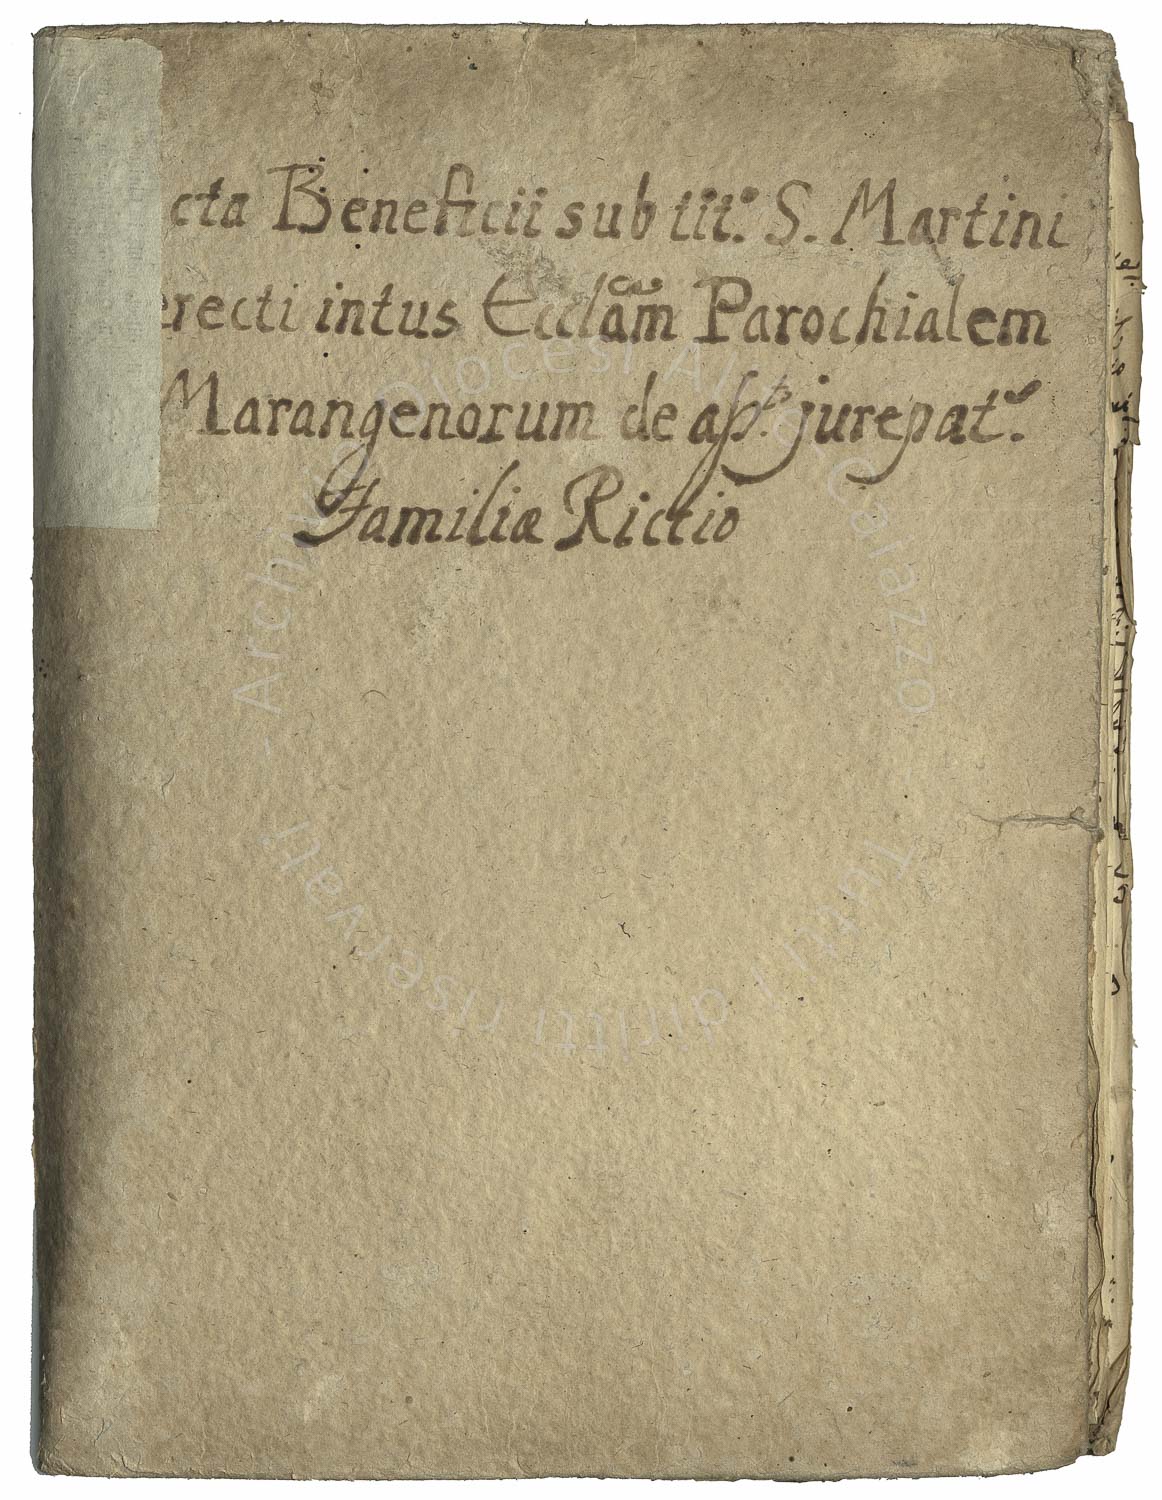 cta Beneficii sub tit.º S. Martini
erecti intus Ecclãm Parochialem
Marangenorum de asp.te jurepat.º
Familiæ Rictio
Archivio Diocesi Alife Caiazzo - Tutti i diritti riservati -